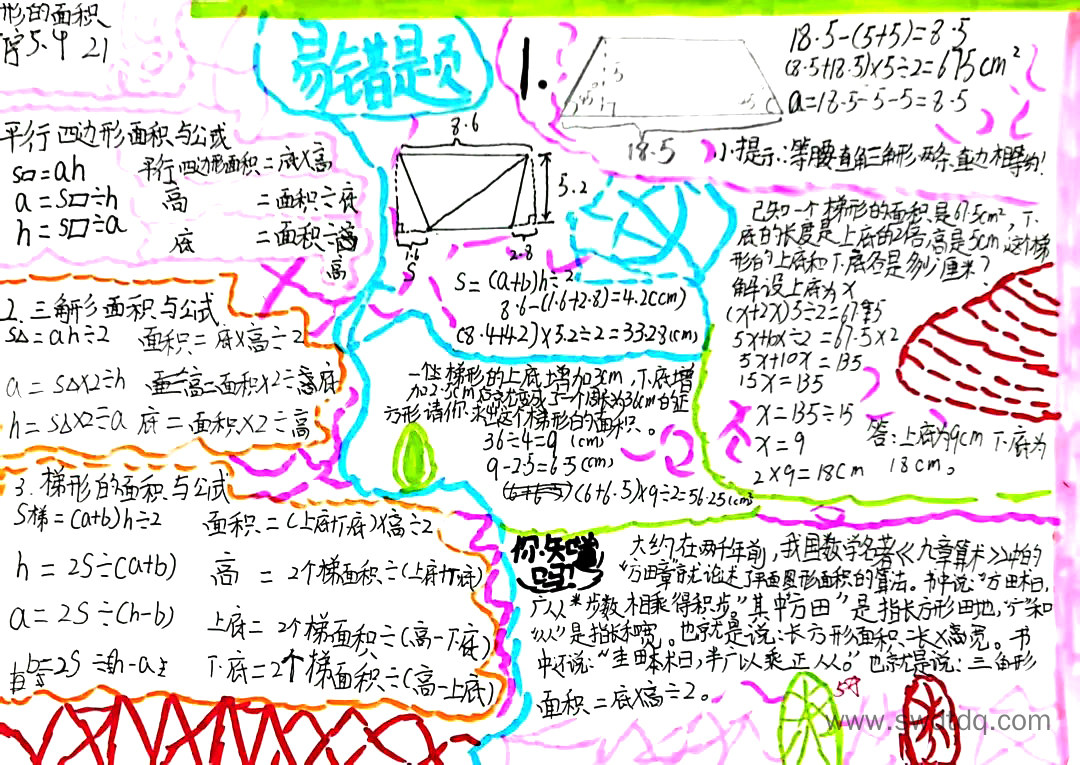 形的面积
5.4 21
平行四边形面积与公式
S▱=ah 平行四边形面积=底×高
a=S▱÷h 高 =面积÷底
h=S▱÷a 底 =面积÷高
高
2.三角形面积与公式
S△=ah÷2 面积=底×高÷2
a=S△×2÷h 高=面积×2÷底
h=S△×2÷a 底=面积×2÷高
3.梯形的面积与公式
S梯=(a+b)h÷2 面积=(上底+下底)×高÷2
h=2S÷(a+b) 高=2个梯面积÷(上底+下底)
a=2S÷(h-b) 上底=2个梯面积÷(高-下底)
b=2S÷(h-a) 下底=2个梯面积÷(高-上底)
易错是页
8.6
5.2
1.6
2.8
S
S=(a+b)h÷2
8.6-(1.6+2.8)=4.2(cm)
(8.4+4.2)×5.2÷2=33.28(cm)
1.
5
45°
18.5
18.5-(5+5)=8.5
(8.5+18.5)×5÷2=675cm²
a=18.5-5-5=8.5
小提示:等腰直角三角形,两条直边相等的!
已知一个梯形的面积是67.5cm²,下
底的长度是上底的2倍,高是5cm,这个梯
形的上底和下底各是多少厘米?
解设上底为x
(x+2x)5÷2=67.5
5x+10x÷2=67.5×2
5x+10x=135
15x=135
x=135÷15
x=9
2×9=18cm
答:上底为9cm下底为
18cm。
一个梯形的上底增加3cm,下底增
加2.5cm后就变成了一个周长为36cm的正
方形请你求出这个梯形的面积。
36÷4=9(cm)
9-2.5=6.5(cm)
(6+6.5)×9÷2=56.25(cm²)
你知道
吗?
大约在两千年前,我国数学名著《九章算术》中的
"方田章"就论述了平面图形面积的算法。书中说:"方田术曰,
广从步数相乘得积步。"其中"方田"是指长方形田地,"广"和
"从"是指长和宽。也就是说:长方形面积=长×宽。书
中还说:"圭田术曰,半广以乘正从。"也就是说:三角形
面积=底×高÷2。
www.swdtdq.com